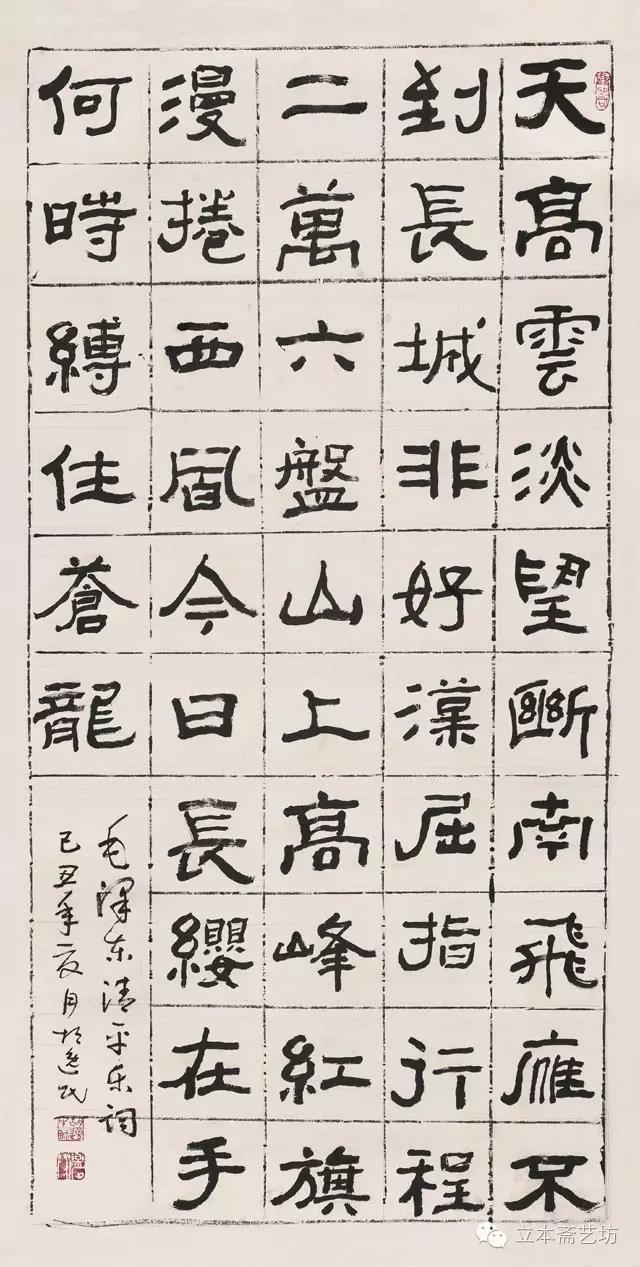 天高雲淡望斷南飛雁不
到長城非好漢屈指行程
二萬六盤山上高峰紅旗
漫捲西風今日長纓在手
何時縛住蒼龍
毛澤东清平乐词
己丑年夏月
立本斋艺坊